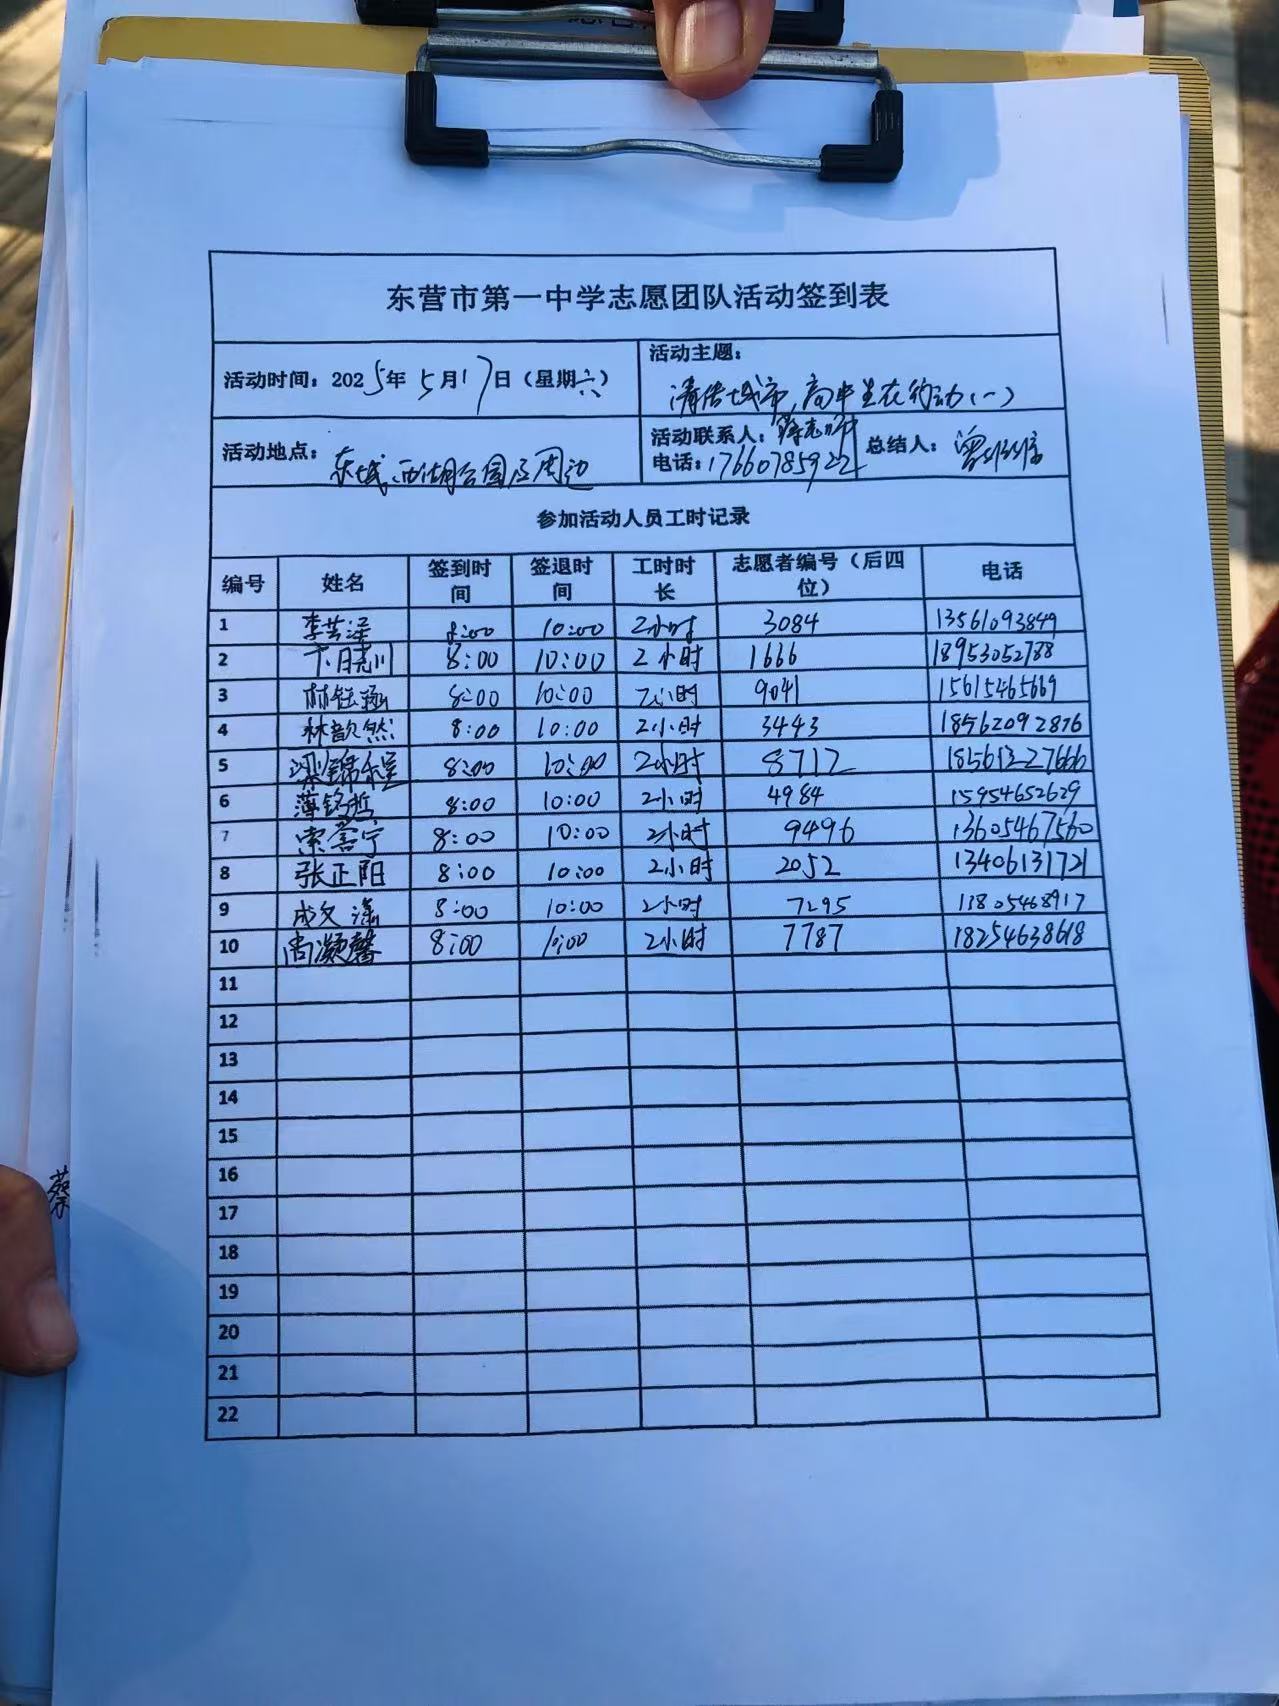 东营市第一中学志愿团队活动签到表
活动时间：2025年5月17日（星期六） 活动主题：
清洁城市，高中生在行动（一）
活动地点：东城西湖公园及周边 活动联系人： 总结人：
电话：17660785922
参加活动人员工时记录
编号 姓名 签到时间 签退时间 工时时长 志愿者编号（后四位） 电话
1 李芸泽 8:00 10:00 2小时 3084 13561093849
2 卞晓川 8:00 10:00 2小时 1666 18953052788
3 林钰涵 8:00 10:00 2小时 9041 15615465669
4 林歆然 8:00 10:00 2小时 3443 18562092876
5 梁锦程 8:00 10:00 2小时 8712
6 薄铭哲 8:00 10:00 2小时 4984 15954652629
7 索誉宁 8:00 10:00 2小时 9496 13605467560
8 张正阳 8:00 10:00 2小时 2052 13406131721
9 成文潇 8:00 10:00 2小时 7295 13805468917
10 尚灏馨 8:00 10:00 2小时 7787 18254638618
11
12
13
14
15
16
17
18
19
20
21
22
蔡